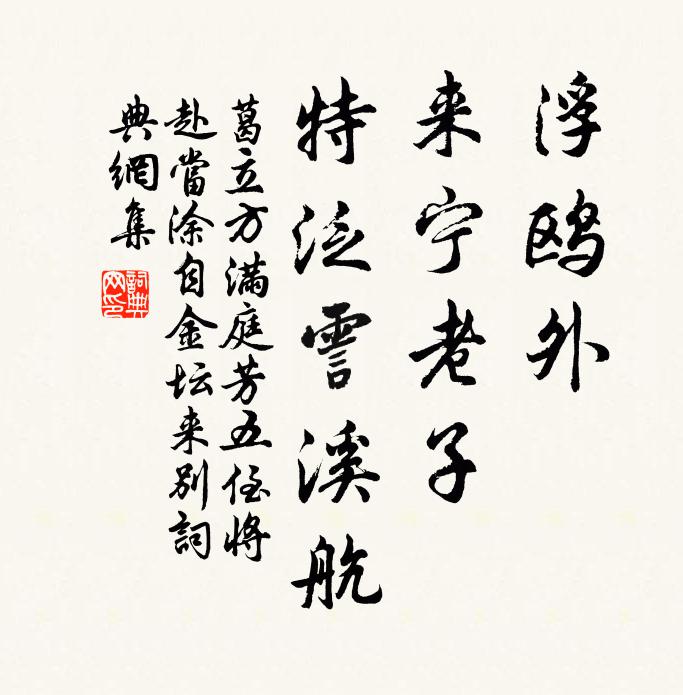 浮鸥外
来宁老子
特泛霅溪航
葛立方满庭芳五侄将
赴當涂自金坛来别詞
典網集
詞典网印